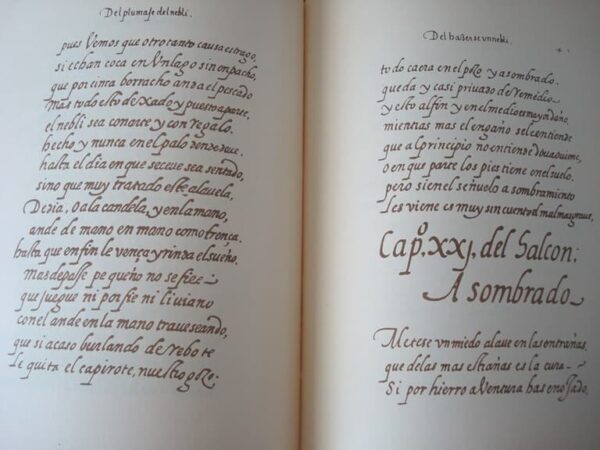 Del plumaje del nebli.
pues Vemos que otro tanto causa estrago,
si echan coca en Vn lago o sin enpacho,
que por cinta borracho anda el pescado
mas todo esto dexado y puesto aparte,
el nebli sea con arte y con regalo
hecho y nunca en el palo
hasta el dia en que seceve sea sentado,
sino que muy tratado este alavela,
De dia, O ala candela, y en la mano,
ande de mano en mano como trença,
hasta que en fin le vença y rinda el sueño.
Mas de passe pequeño no se fie
que juegue ni porfie ni liviano
con el ande en la mano traveseando,
que si acaso burlando de Rebote
le quita el capirote, nuestro goze.
Del hazerse vn nebli.
todo caera en el pozo y asombrado
queda y casi privado de Remedio
y esto al fin y en el medio es mayor daño,
mientras mas el engaño se le entiende
que al principio no entiende
o en que parte los pies tiene en el suelo.
pero si en el señuelo asombramiento
les viene es muy sin cuento el mal
Capº. xxj. del Halcon:
Asombrado
Metese vn miedo al ave en las entrañas.
que de las mas estrañas es la cura
Si por hierro a Ventura has enojado.